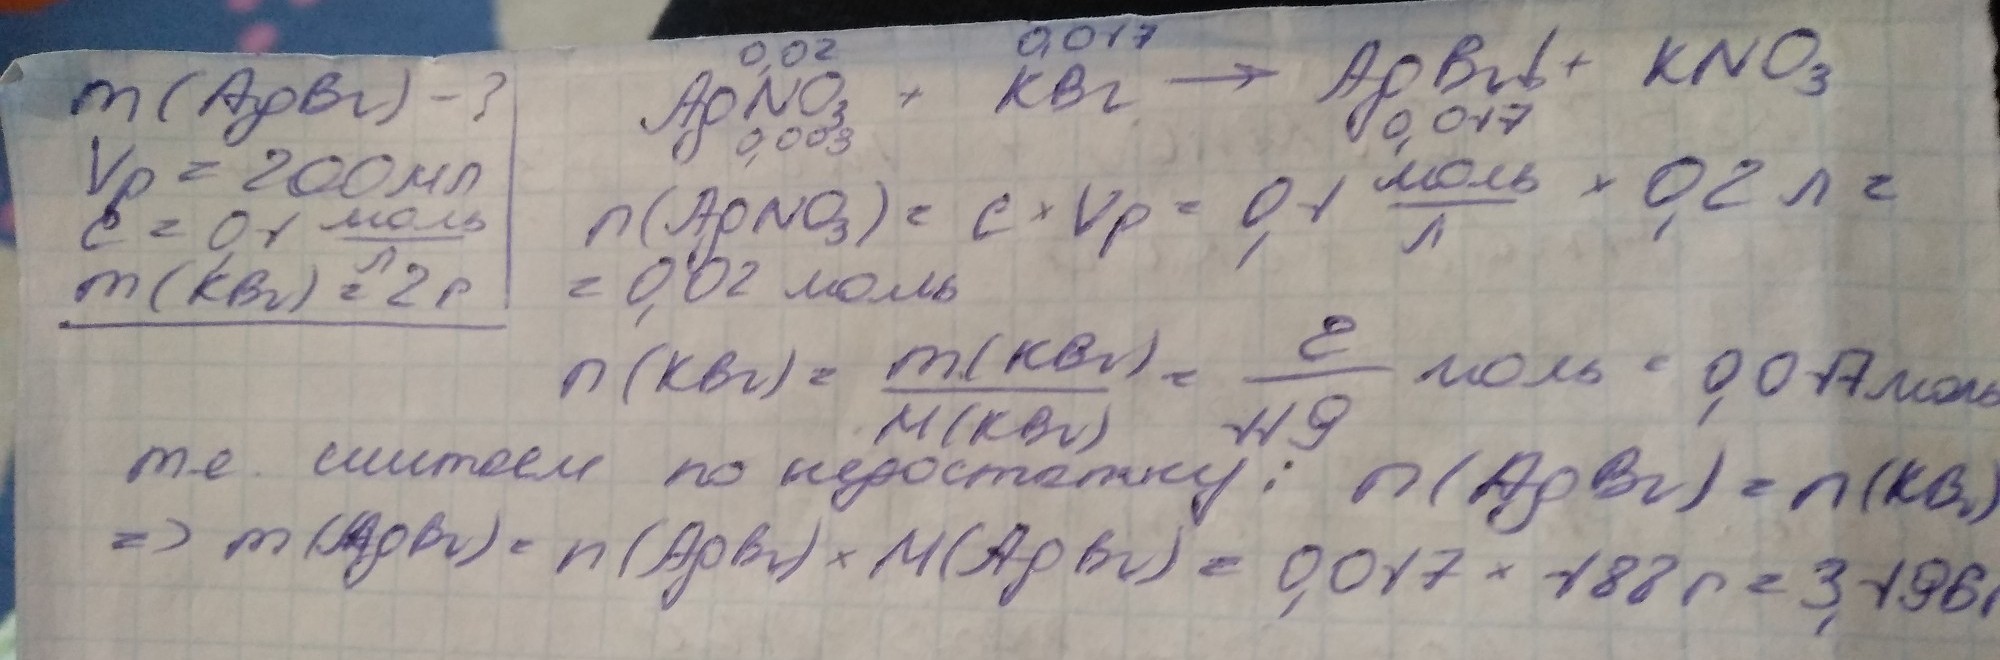 m(AgBr) - ?
Vр = 200 мл
c = 0,1 моль/л
m(KBr) = 2 г
0,02 0,017
AgNO₃ + KBr → AgBr↓ + KNO₃
0,003 0,017
n(AgNO₃) = c × Vр = 0,1 моль/л × 0,2 л =
= 0,02 моль
n(KBr) = m(KBr)/M(KBr) = 2/119 моль = 0,017 моль
т.е. считаем по недостатку: n(AgBr) = n(KBr)
=> m(AgBr) = n(AgBr) × M(AgBr) = 0,017 × 188 г = 3,196 г